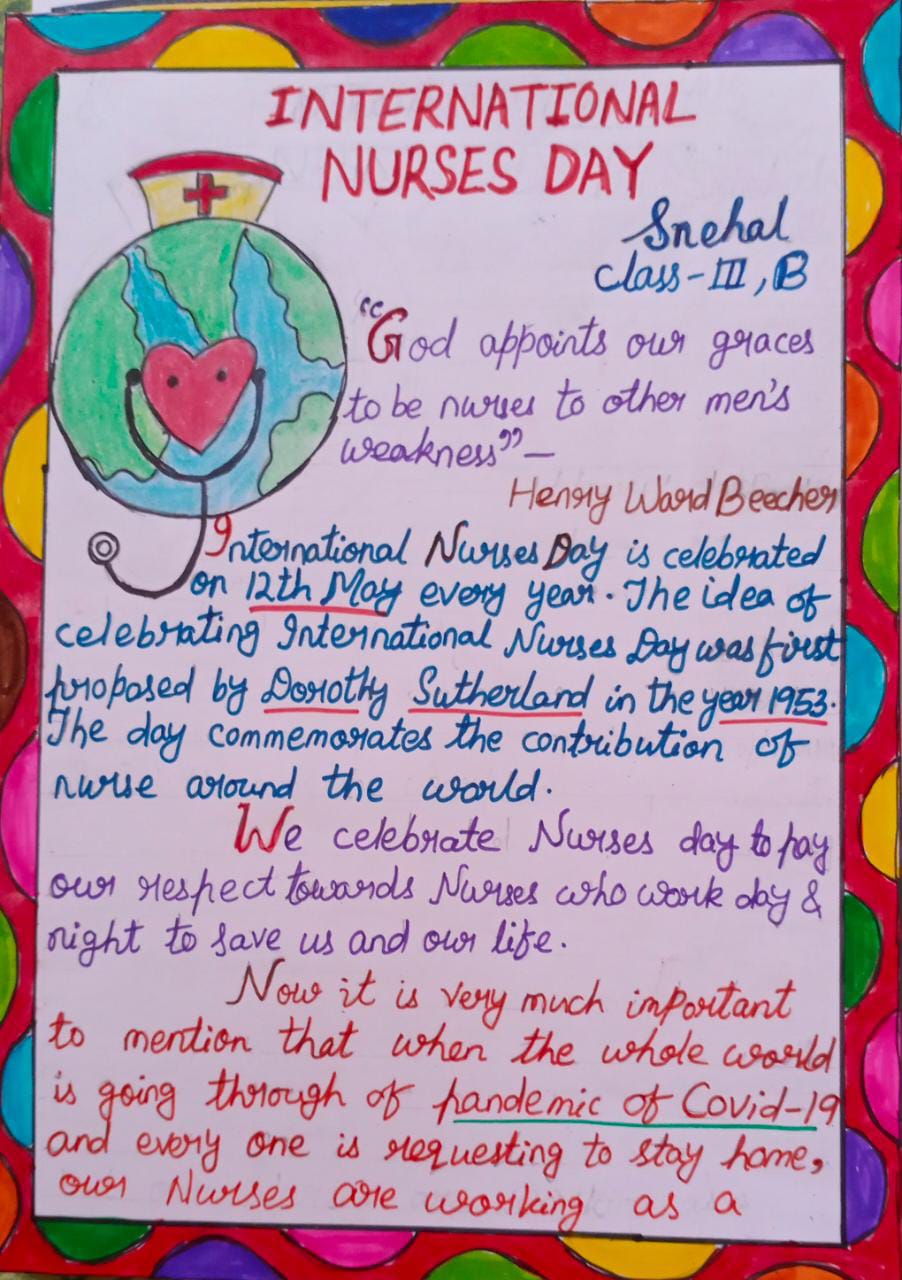 INTERNATIONAL
NURSES DAY
Snehal
Class-III, B
"God appoints our graces
to be nurses to other men's
weakness" –
Henry Ward Beecher
International Nurses Day is celebrated
on 12th May every year. The idea of
celebrating International Nurses Day was first
proposed by Dorothy Sutherland in the year 1953.
The day commemorates the contribution of
nurse around the world.
We celebrate Nurses day to pay
our respect towards Nurses who work day &
night to save us and our life.
Now it is very much important
to mention that when the whole world
is going through of pandemic of Covid-19
and every one is requesting to stay home,
our Nurses are working as a